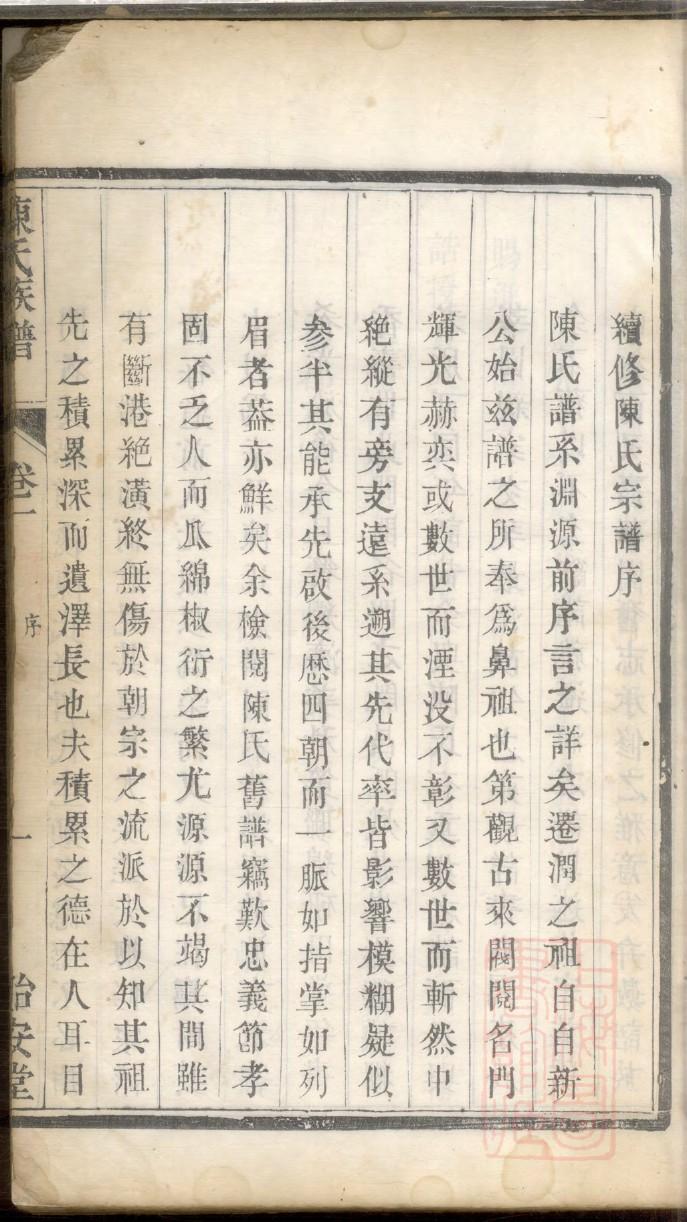 續修陳氏宗譜序
陳氏譜系淵源前序言之詳矣遷潤之祖自自新
公始玆譜之所奉爲鼻祖也第觀古來閥閱名門
輝光赫奕或數世而湮没不彰又數世而斬然中
絶縱有旁支遠系遡其先代率皆影響模糊疑似
参半其能承先啟後歴四朝而一脈如指掌如列
眉者葢亦鮮矣余檢閱陳氏舊譜竊歎忠義節孝
固不乏人而瓜綿椒衍之繁尤源源不竭其間雖
有斷港絶潢終無傷於朝宗之流派於以知其祖
先之積累深而遺澤長也夫積累之德在人耳目
陳氏族譜
卷一
序
一
怡安堂